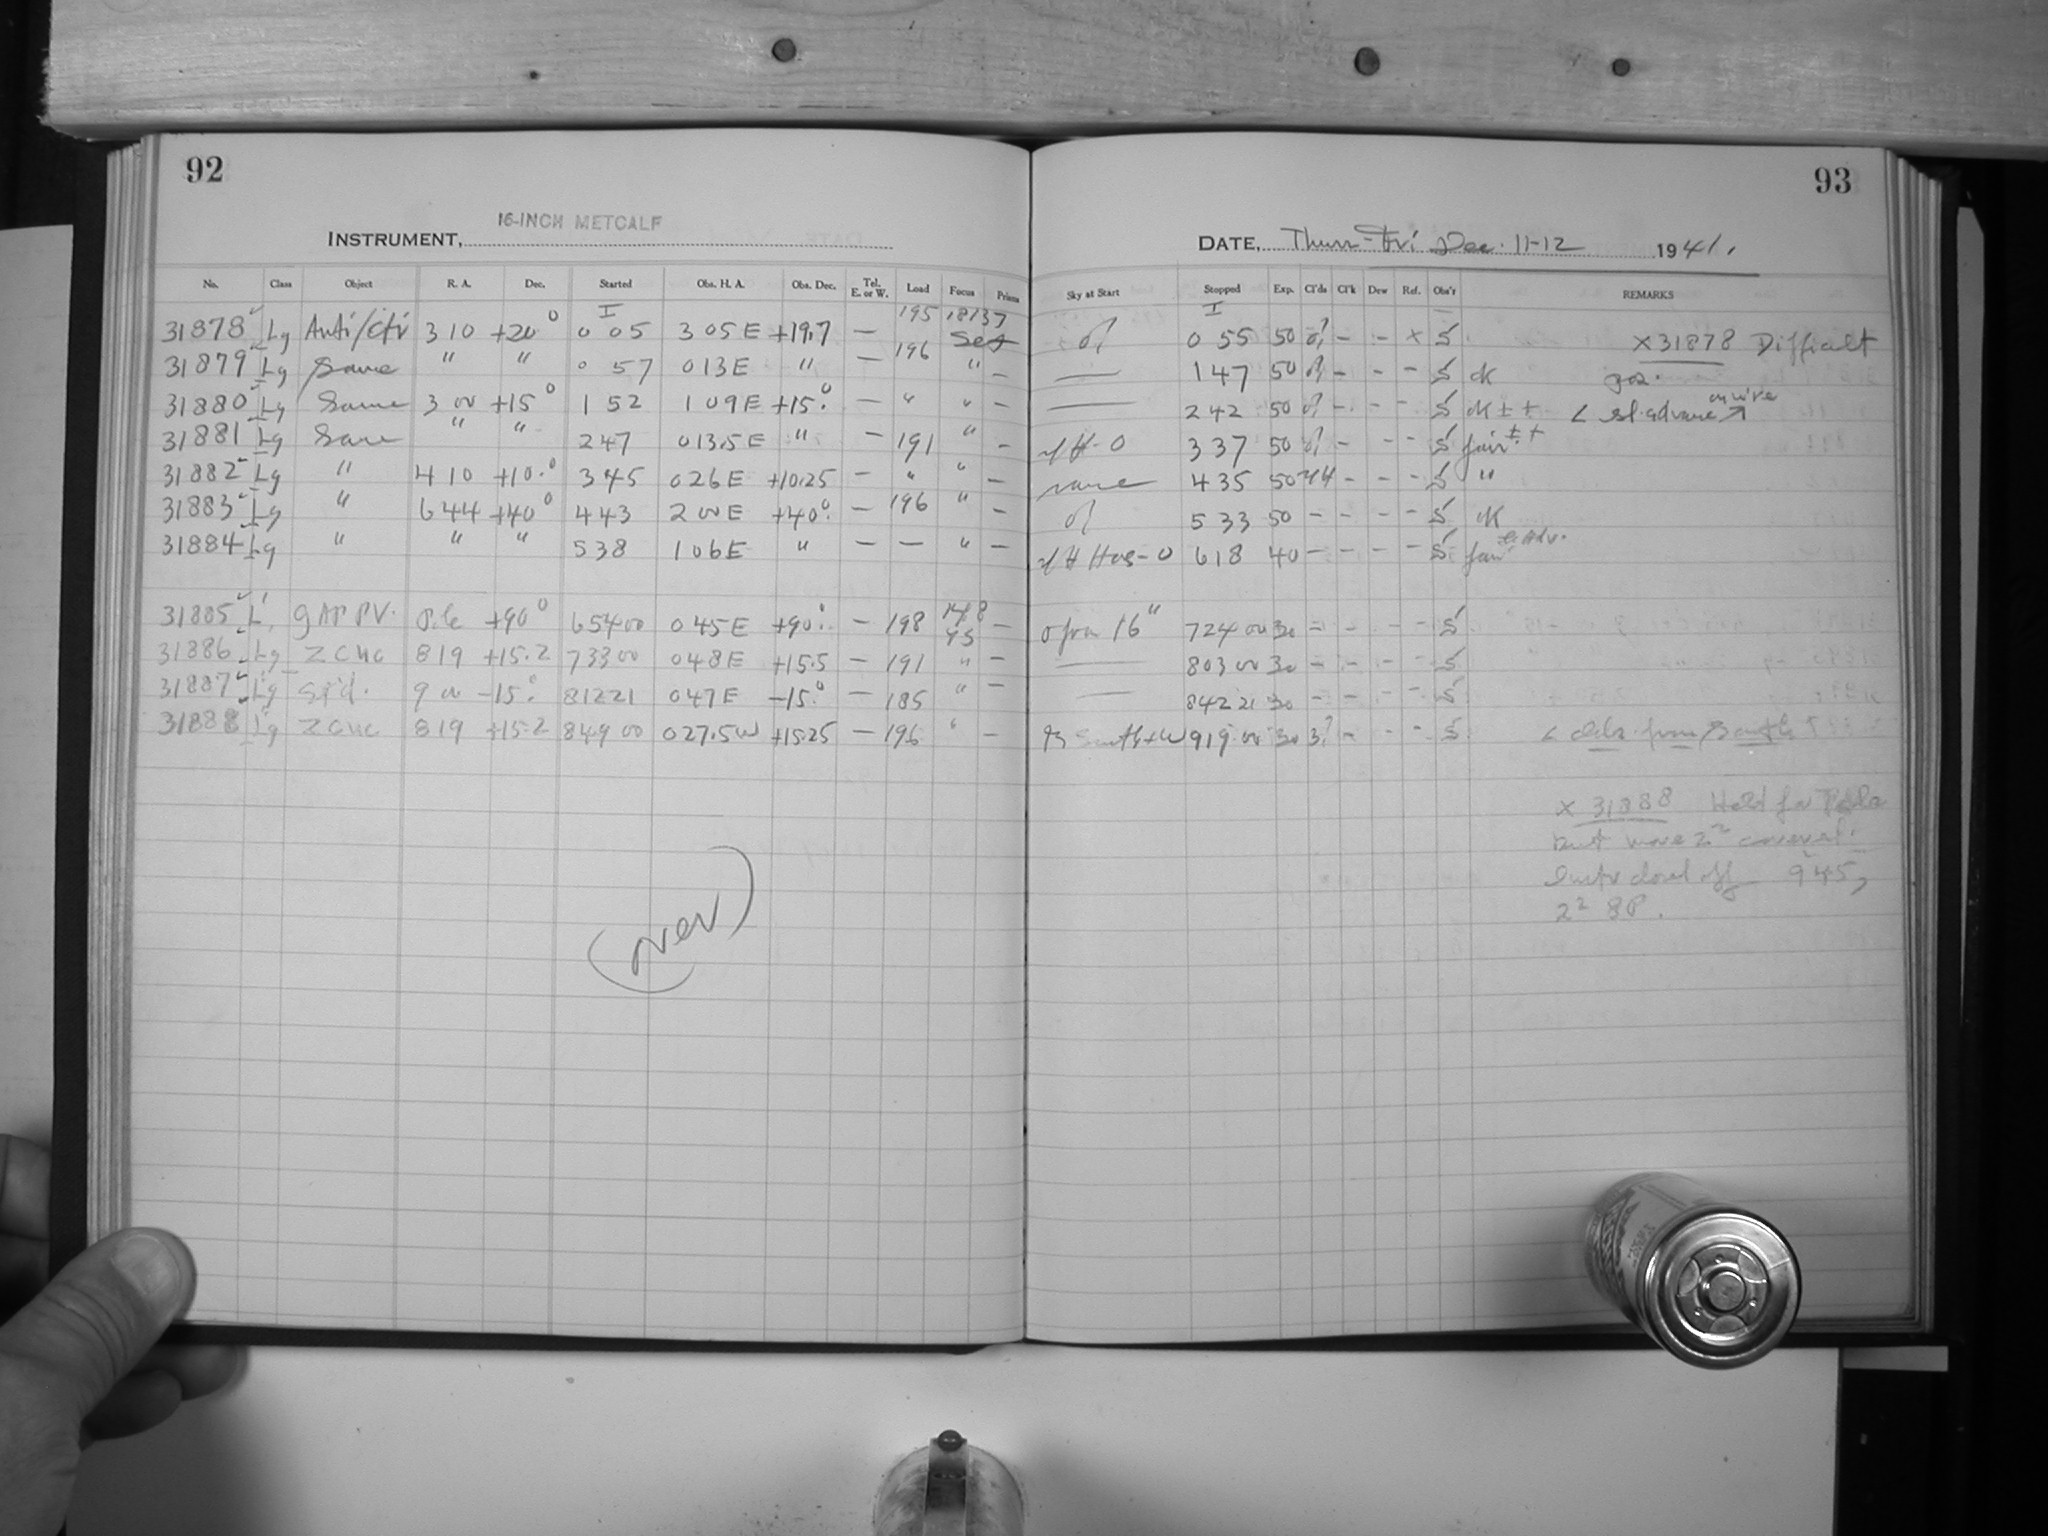 92
16-INCH METCALF
INSTRUMENT,
No. Class Object R. A. Dec. Started Obs. H. A. Obs. Dec. Tel. E. or W. Load Focus Prisms
31878 Lg Anti/Ctr 3 10 +20° 0 05 3 05 E +19.7 — 195 18137
31879 Lg Same " " 0 57 0 13 E " — 196 " —
31880 Lg Same 3 00 +15° 1 52 1 09 E +15.° — " " —
31881 Lg Same " " 2 47 0 13.5 E " — 191 " —
31882 Lg " 4 10 +10.° 3 45 0 26 E +10.25 — " " —
31883 Lg " 6 44 +40° 4 43 2 00 E +40° — 196 " —
31884 Lg " " " 5 38 1 06 E " — — " —
31885 L gAPPV. Pole +90° 6 54 00 0 45 E +90° — 198 —
31886 Lg ZCnc 8 19 +15.2 7 33 00 0 48 E +15.5 — 191 " —
31887 Lg St'd. 9 00 -15.° 8 12 21 0 47 E -15.° — 185 " —
31888 Lg ZCnc 8 19 +15.2 8 49 00 0 27.5 W +15.25 — 196 " —
(over)
93
DATE, Thur-Fri Dec. 11-12 1941.
Sky at Start Stopped Exp. Cl'ds Cl'k Dew Ref. Obs'r REMARKS
0 55 50 - - x S x31878 Difficult
— 1 47 50 - - - S ok
— 2 42 50 - - - S ok ± ± < sl. advance on wire
3 37 50 - - - S fair ± +
same 4 35 50 - - - S "
5 33 50 - - - - S ok
6 18 40 - - - - S fair
open 16" 7 24 00 30 - - - - S
— 8 03 00 30 - - - - S
— 8 42 21 30 - - - - S
South + W 9 19 00 30 3? - - - S < clds from South
x 31888 Held for
but more cover
Instr closed off 9 45,